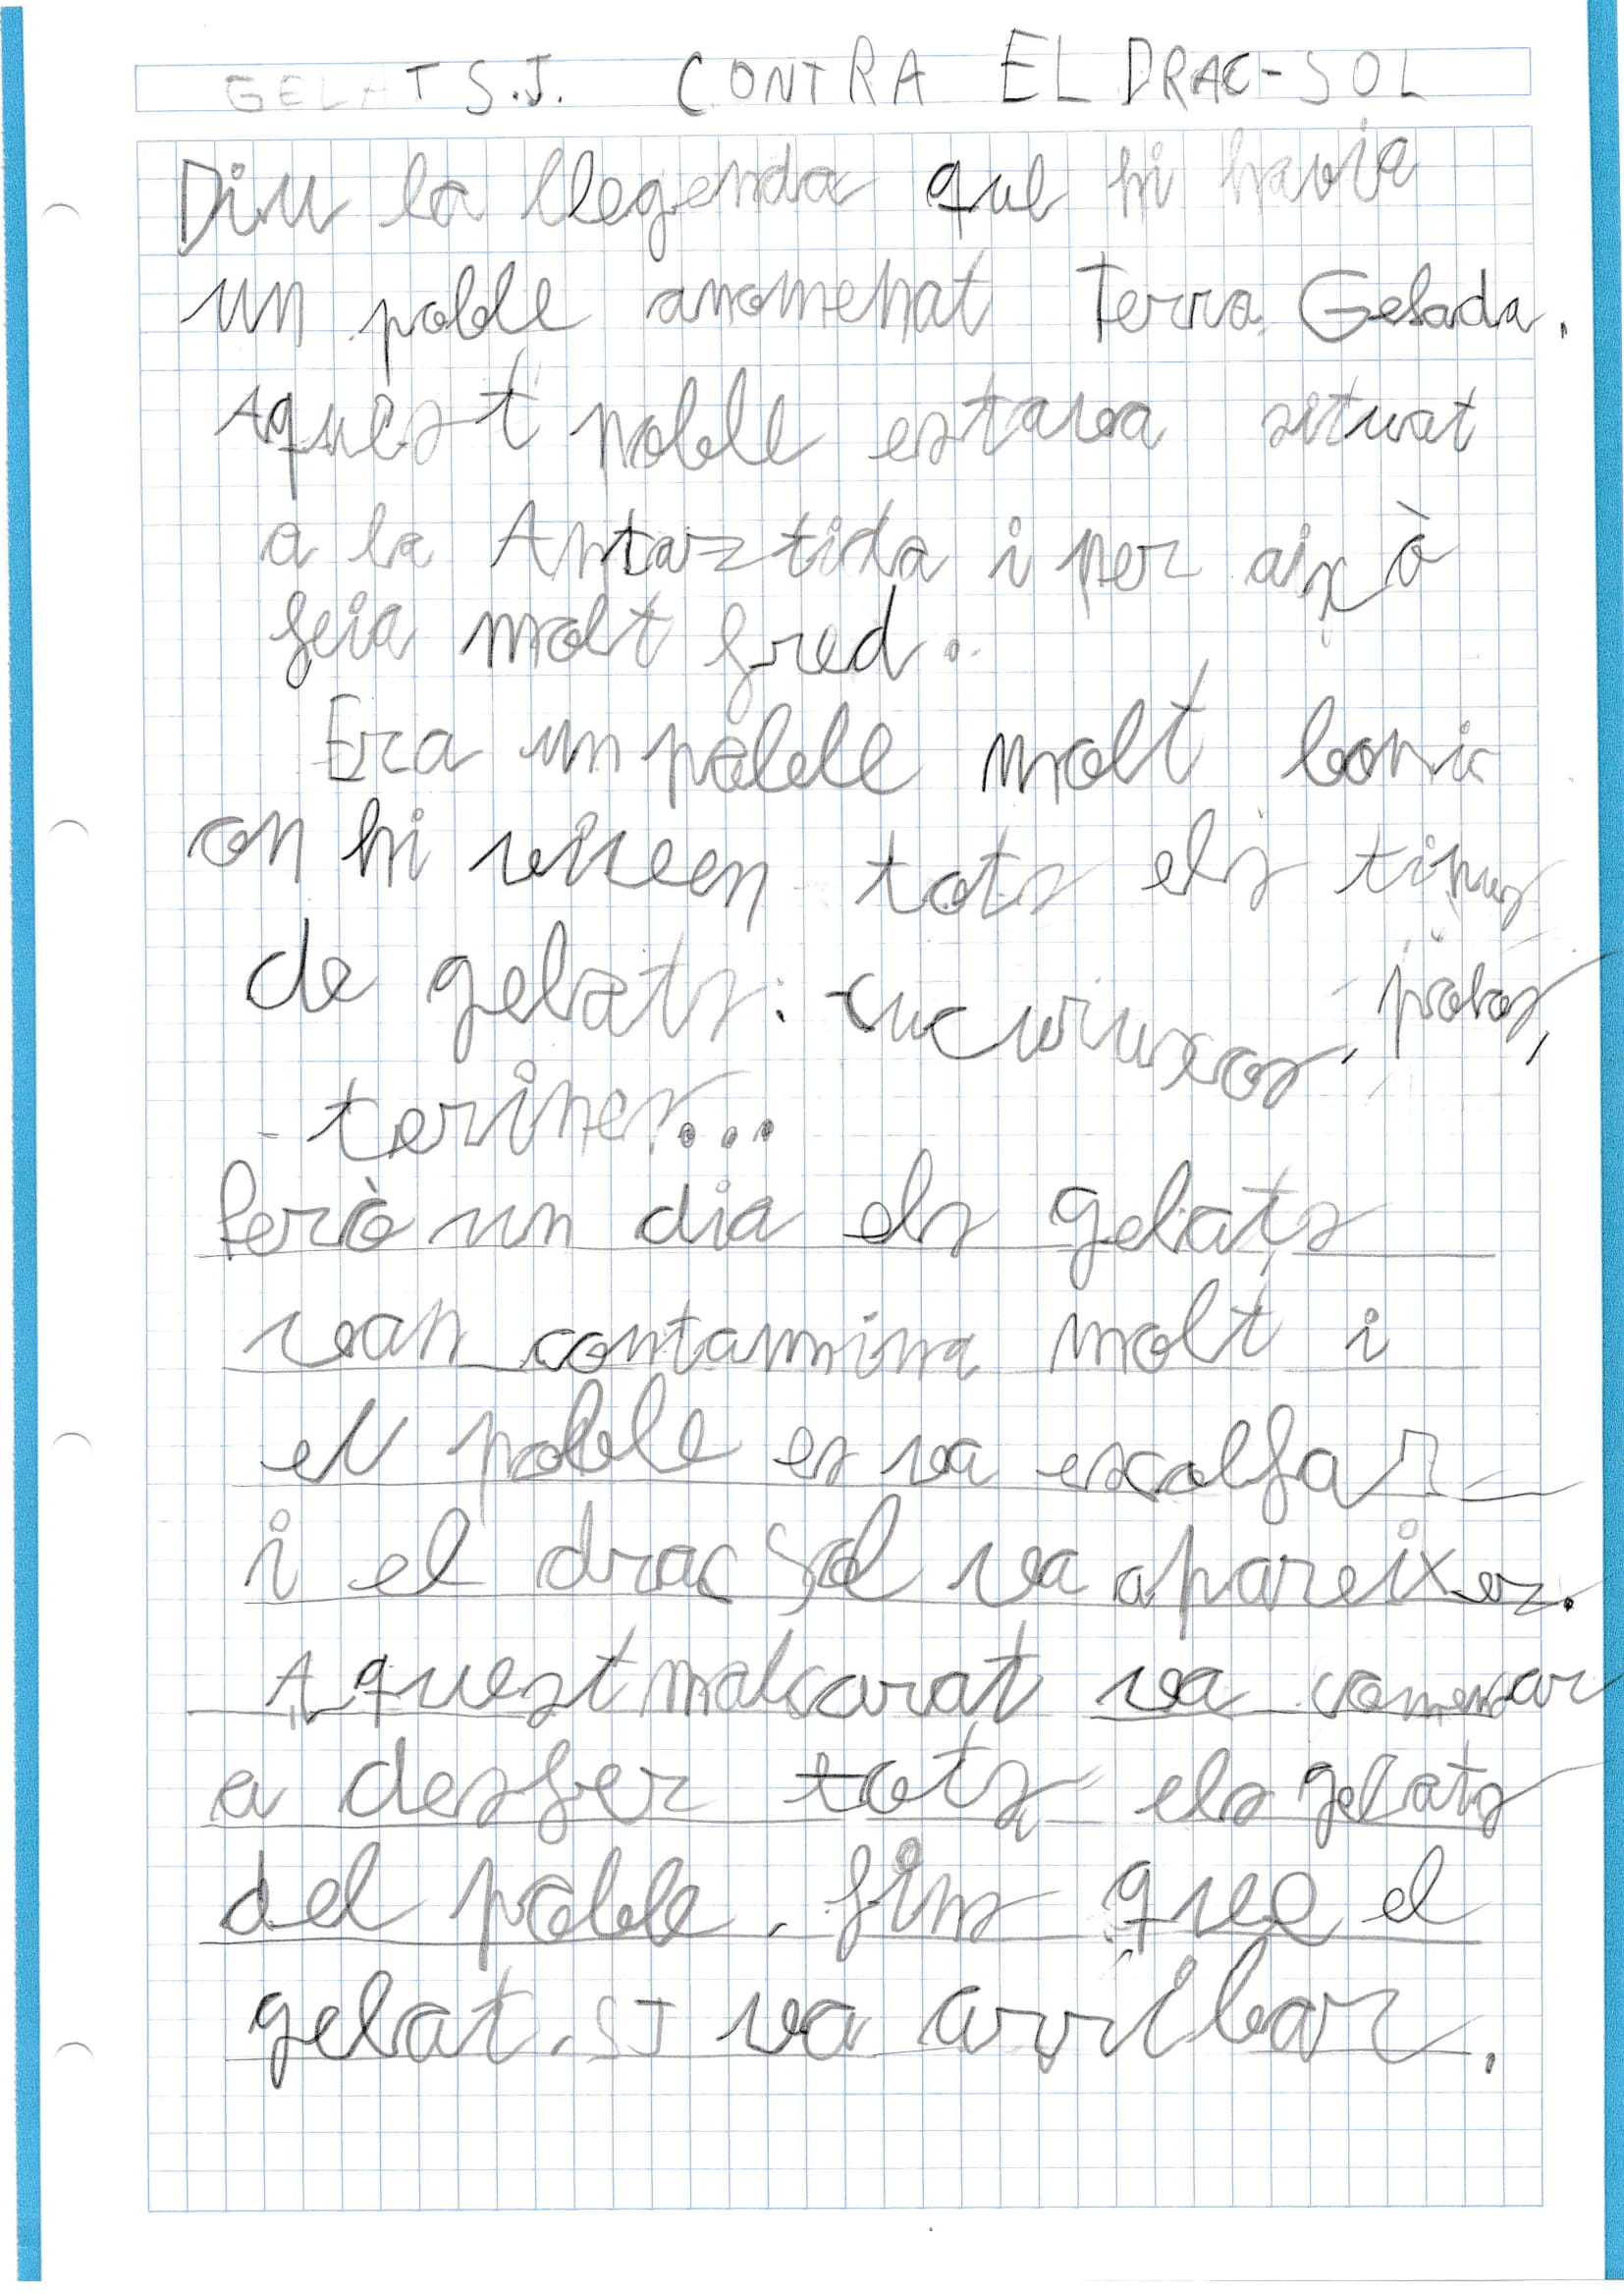 GELAT S.J. CONTRA EL DRAC-SOL
Diu la llegenda que hi havia
un poble anomenat Terra Gelada.
Aquest poble estava situat
a la Antartida i per això
feia molt fred.
Era un poble molt bonic
on hi viuen tots els tipus
de gelats: cucuruxos, polos,
terines...
Però un dia els gelats
van contamina molt i
el poble es va escalfar
i el drac Sol va apareixer.
Aquest malcarat va comensar
a desfer tots els gelats
del poble. fins que el
gelat. SJ va arribar.